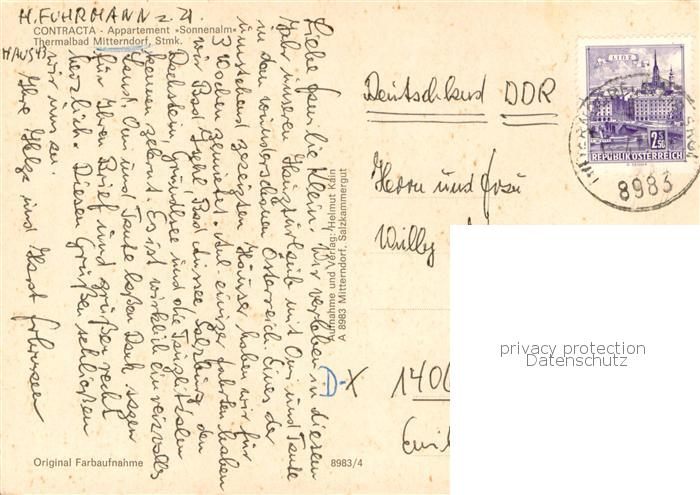 H. FUHRMANN z. Zt.
CONTRACTA - Appartement »Sonnenalm«
Thermalbad Mitterndorf, Stmk.
HAUS 43
Liebe Familie Klein. Wir verleben in diesem
Jahr unseren Haupturlaub mit Omi und Tante
in dem wunderschönen Österreich. Eines der
umstehend gezeigten Häuser haben wir für
3 Wochen gemietet. Auf einigen Fahrten haben
wir Bad Ischl, Bad Aussee, Salzburg, den
Dachstein, Grundlsee und die
kennen gelernt. Es ist wirklich ein reizvolles
Land. Omi und Tante laßen Dank sagen
für Ihren Brief und grüßen recht
herzlich. Diesen Grüßen schließen
wir uns an.
Ihre Helga und Horst Fuhrmann
Aufnahme und Verlag: Helmut Kain
A 8983 Mitterndorf, Salzkammergut
Original Farbaufnahme
8983/4
LINZ
2.50
S
REPUBLIK ÖSTERREICH
8983
Deutschland DDR
Herrn und Frau
Willy
D-X 1406
privacy protection
Datenschutz